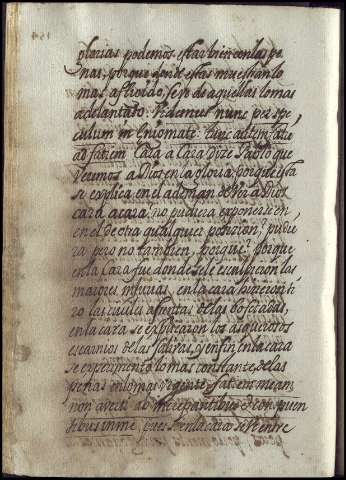 glorias podemos estar bien con las pe
nas, porque donde estas muestran lo
mas afligido, se ve de aquellas lo mas
adelantado. Videmus nunc per spe
culum in enigmate: tunc autem facie
ad faciem Cara a Cara dize Pablo que
Vecemos a Dios en la gloria, porque esta
se explica en el ademan de ver a Dios
cara a cara: no pudiera exponerse en,
en el de otra qualquier posizion? pudie
ra pero no tambien, porque? porque
en la Cara fue donde se le esculpieron las
maiores injurias, en la cara hizieron ti
ro las crueles afrentas de las bofetadas,
en la cara se explicaron los asquerosos
escarnios de las salivas, y en fin en la cara
se experimentò lo mas constante de las
penas en lo mas vrgente: faciem meam
non averti ab increpantibus et conspuen
tibus in me, pues en la cara se